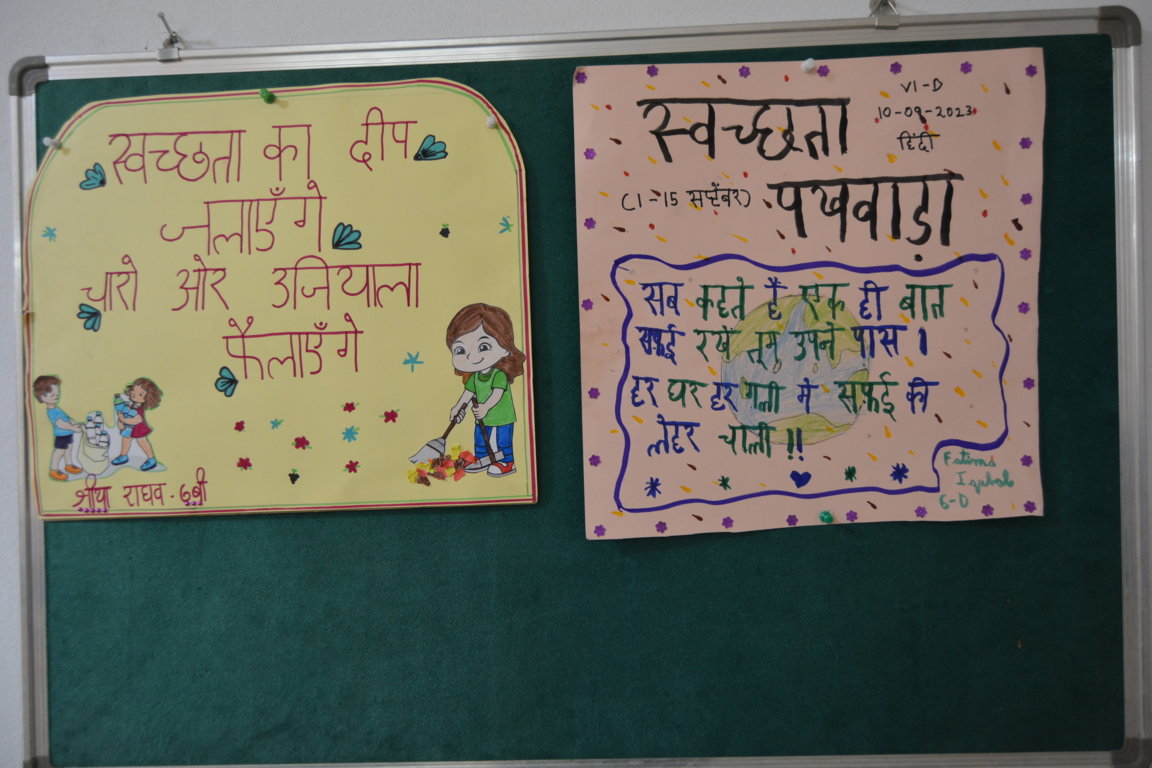 स्वच्छता का दीप
जलाएँगे
चारो ओर उजियाला
फैलाएँगे
श्रीया राघव - 6बी
VI-D
10-09-2023
हिंदी
स्वच्छता
(1-15 सप्टेंबर)
पखवाड़ा
सब कहते है एक ही बात
सफाई रखें तुम उपने पास ।
हर घर हर गली मे सफ़ई की
लेहर चाली !!
Fatima
Iqubal
6-D